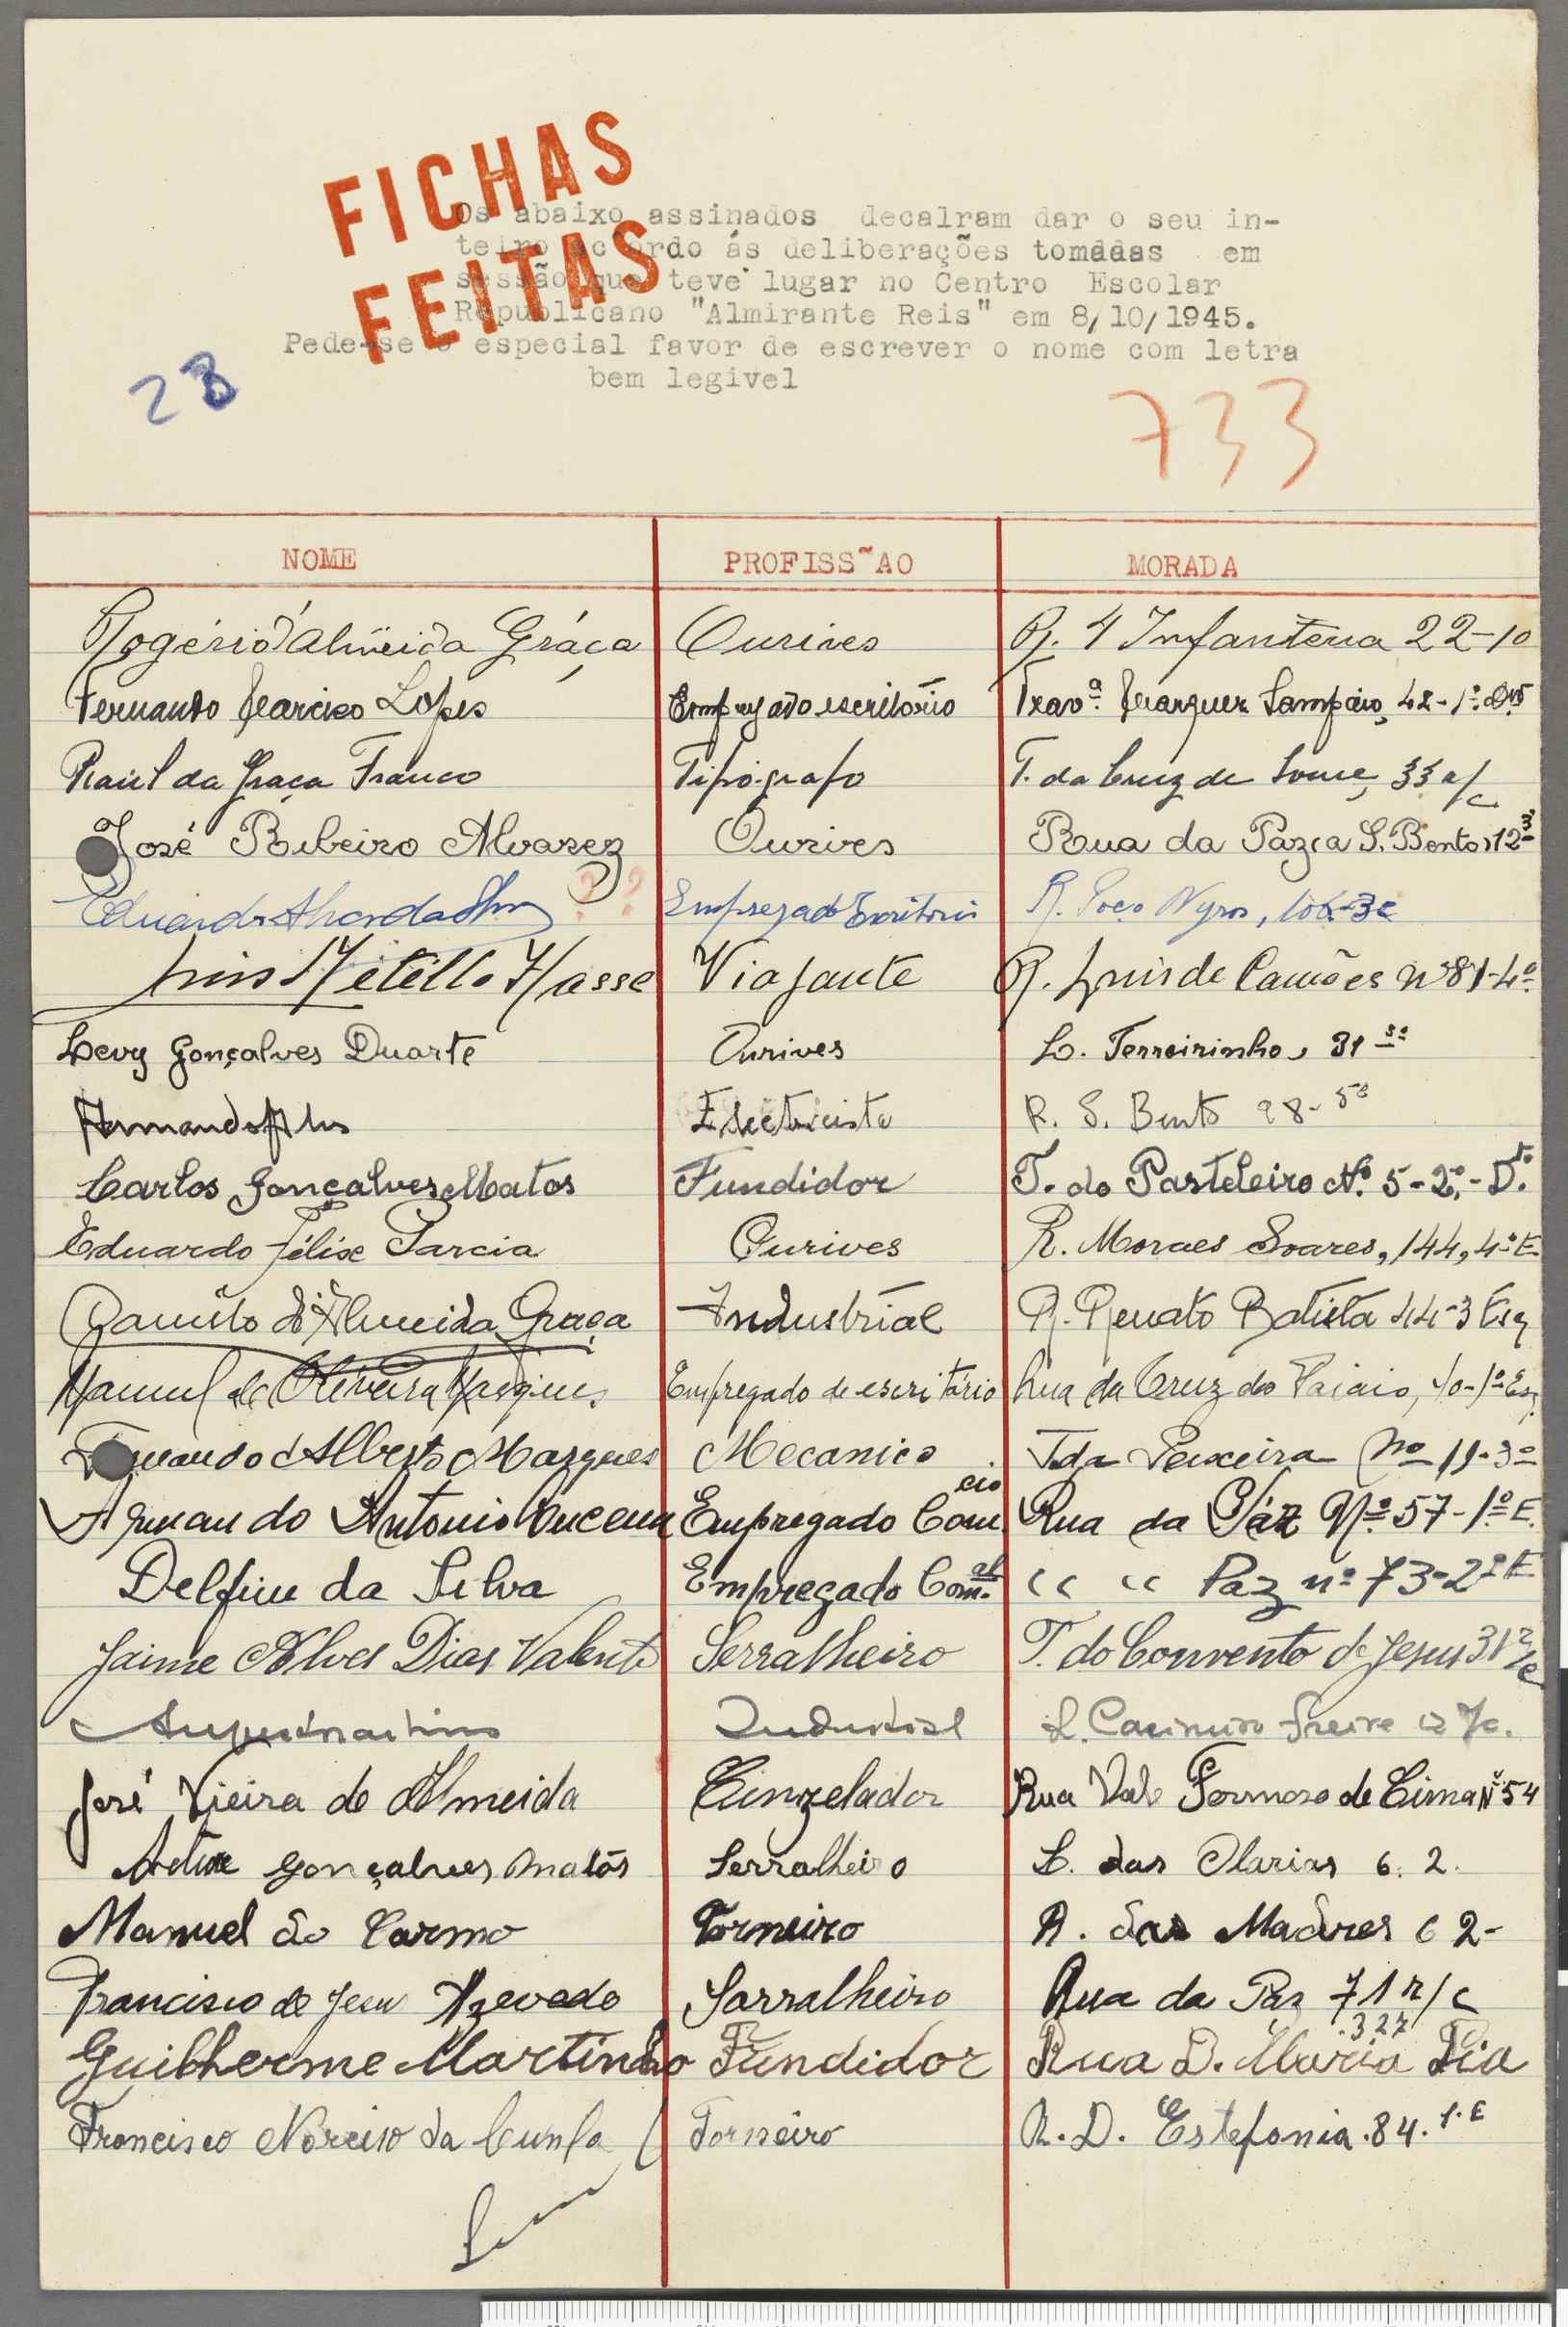 FICHAS
FEITAS
Os abaixo assinados decalram dar o seu in-
teiro acordo ás deliberações tomadas em
sessão que teve lugar no Centro Escolar
Republicano "Almirante Reis" em 8/10/1945.
Pede-se o especial favor de escrever o nome com letra
bem legivel
28
733
NOME PROFISS~AO MORADA
Rogério d'Almeida Graça Ourives R. 4 Infanteria 22-1o
Fernando Narciso Lopes Empregado escritório Travª. Marquez Sampaio, 42-1º.
Raúl da Graça Franco Tipógrafo T. da Cruz de Soure, 33 r/c
José Ribeiro Alvarez Ourives Rua da Paz (a S. Bento) 12-3
Eduardo ?? Empregado Escritorio R. Poço Negros,
Luis Hasse Viajante R. Luis de Camões Nº 81-4º
Levy Gonçalves Duarte Ourives L. Terreirinho, 31
Armando Electricista R. S. Bento 98-5º
Carlos Gonçalves Matos Fundidor T. do Pasteleiro Nº. 5-2º.-Dto.
Eduardo Félix Garcia Ourives R. Moraes Soares, 144, 4º E.
Camilo d'Almeida Graça Industrial R. Renato Batista 44-3 Esq
Manuel de Oliveira Marques Empregado de escritório Rua da Cruz do Taiaio, 40-1º Esq.
Fernando Alberto Marques Mecanico T. da Peixeira Nº 11-3º
Armando Antonio Lucena Empregado Comercio Rua da Páz Nº 57-1º E.
Delfim da Silva Empregado Com.al " " Paz nº 73-2º E
Jaime Alves Dias Valente Serralheiro T. do Convento de Jesus 31 r/c
Industrial R. Casimiro Freire 12 r/c.
José Vieira de Almeida Cinzelador Rua Vale Formoso de Cima Nº 54
Artur Gonçalves Matos Serralheiro L. das Olarias 6. 2.
Manuel do Carmo Torneiro R. das Madres 62-
Francisco de Jesus Azevedo Sarralheiro Rua da Paz 71 r/c
Guilherme Martinho Fundidor Rua D. Maria Pia 327
Francisco Narciso da Cunha Torneiro R. D. Estefania. 84. 1. E